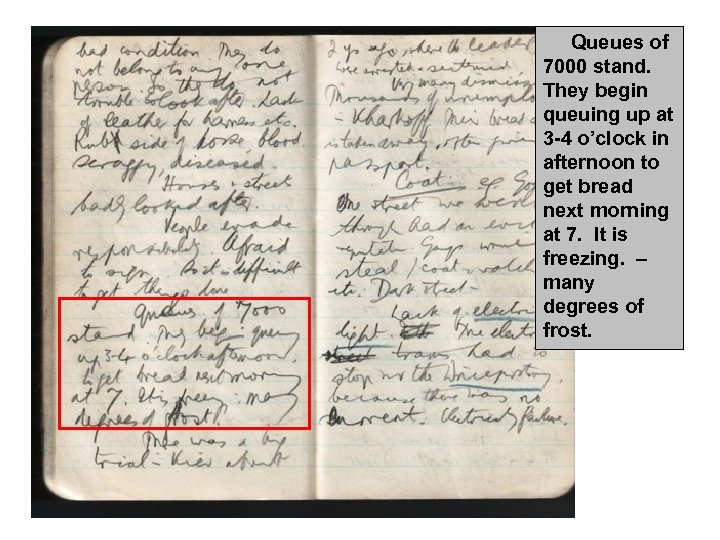 bad condition. They do
not belong to any one
person so they do not
trouble to look after. Lack
of leather for harness etc.
Rubs side of horse, blood.
Scraggy, diseased.
Houses & street
badly looked after.
People evade
responsibility. Afraid
to sign. So it is difficult
to get things done
Queues of 7000
stand. They begin queuing
up 3-4 o'clock afternoon
to get bread next morning
at 7. It is freezing. many
degrees of frost.
There was a big
trial - Kiev about
2 yrs ago, where the leader
were arrested & sentenced.
Very many dismiss
Thousands of unemplo
- Kharkoff. Their bread
is taken away, often
passport.
Coat. eg
One street we went
through had an evil
reputat. Gangs
steal / coat - watch
etc. Dark street -
Lack of electri
light. The electri
street trams had to
stop nr the
because there was no
current. Electricity failure.
Queues of
7000 stand.
They begin
queuing up at
3-4 o’clock in
afternoon to
get bread
next morning
at 7. It is
freezing. –
many
degrees of
frost.